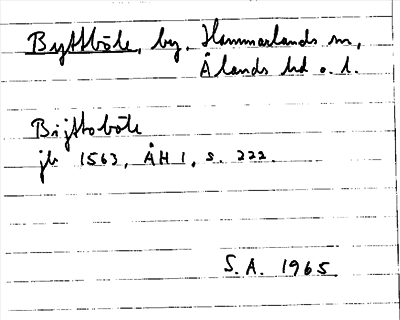 Byttböle, by, Hammarlands sn,
Ålands hd o. l.
Bijttoböle
jb 1563, ÅH 1, s. 222.
S.A. 1965